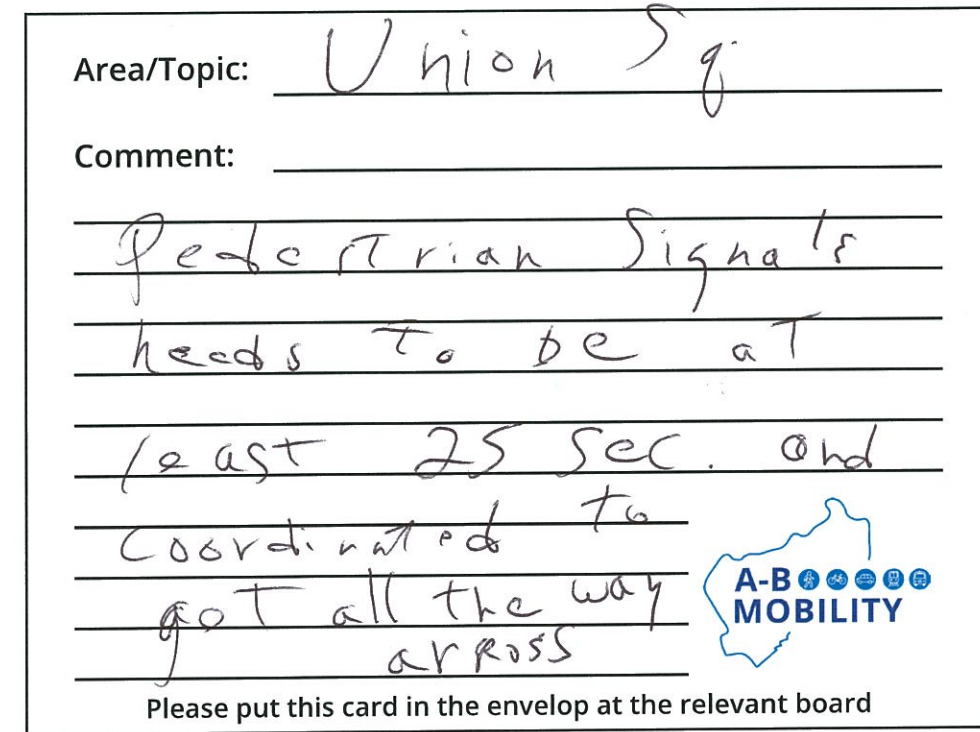 Area/Topic: Union Sq.
Comment:
Pedestrian Signals
needs to be at
least 25 sec. and
coordinated to
get all the way
arross
A-B
MOBILITY
Please put this card in the envelop at the relevant board